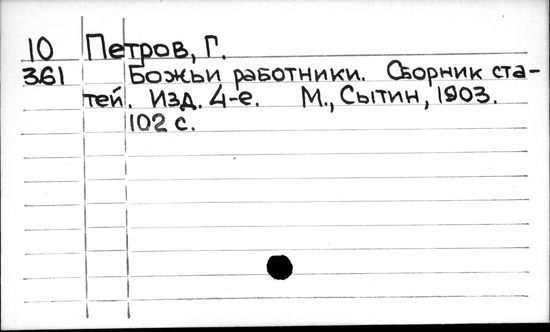 10 Петров, Г.
361 Божьи работники. Сборник ста-
тей. Изд. 4-е. М., Сытин, 1903.
102 с.